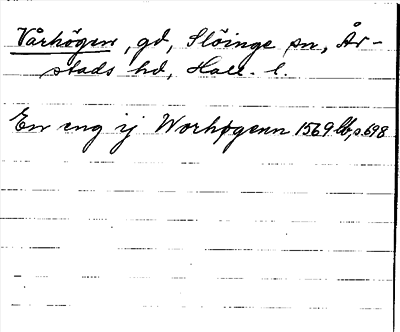 Vårhögen, gd, Slöinge sn, År-
stads hd, Hall. l.
En eng ij Worhøgenn 1569 lb, s. 698